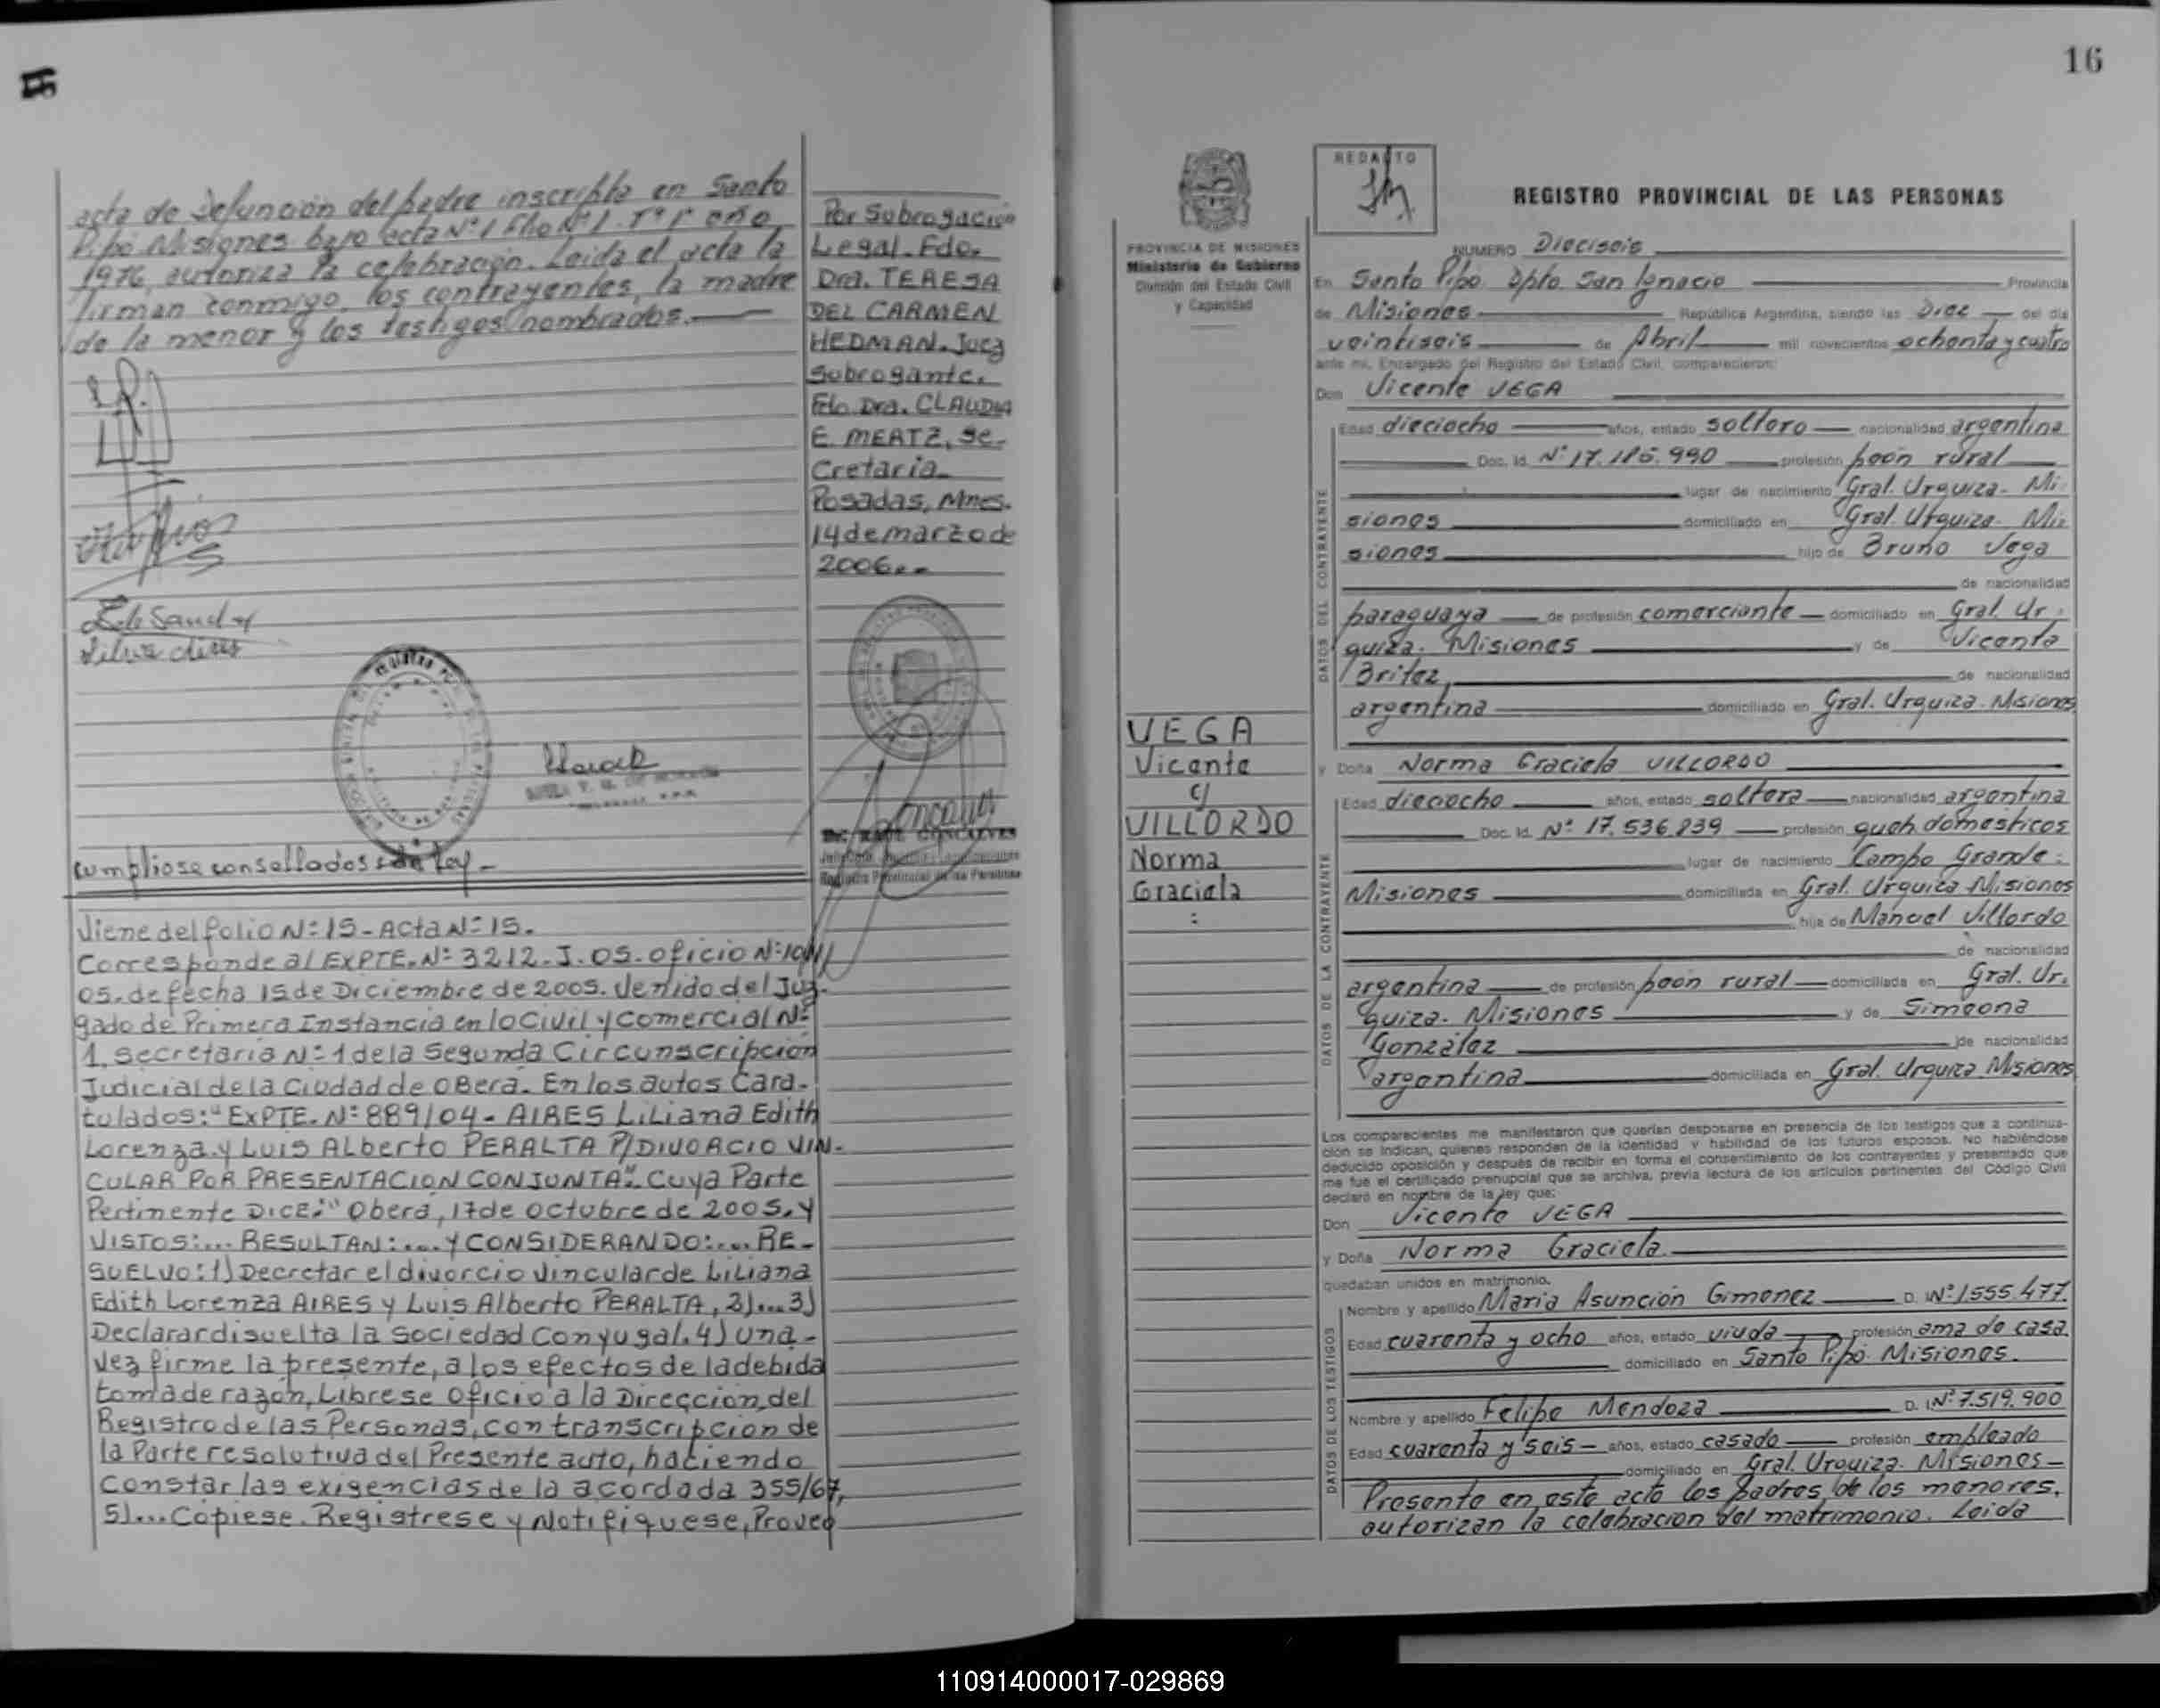 acta de Defunción del padre inscripto en Santo
Pipó Misiones bajo acta Nº 1 Flio Nº 1. Tº 1º año
1976, autoriza la celebración. Leida el acta la
firman conmigo, los contrayentes, la madre
de la menor y los testigos nombrados.
cumpliose con sellados de ley.-
Viene del folio Nº 15 - Acta Nº 15.
Corresponde al EXPTE. Nº 3212. J. 05. oficio Nº
05. de fecha 15 de Diciembre de 2005. Venido del Juz-
gado de Primera Instancia en lo Civil y Comercial Nº
1, Secretaria Nº 1 de la Segunda Circunscripción
Judicial de la Ciudad de OBera. En los autos Cara-
tulados: "EXPTE. Nº 889/04 - AIRES LiLiana Edith
Lorenza y Luis ALberto PERALTA P/DIVORCIO VIN-
CULAR POR PRESENTACION CONJUNTA". Cuya Parte
Pertinente DICE: "Oberá, 17 de octubre de 2005. Y
VISTOS:... RESULTAN:.... Y CONSIDERANDO:.... RE-
SUELVO: 1) Decretar el divorcio Vincular de LiLiana
Edith Lorenza AIRES y Luis Alberto PERALTA, 2).... 3)
Declarar disuelta la Sociedad Conyugal. 4) Una-
vez firme la presente, a los efectos de la debida
toma de razón, Librese Oficio a la Dirección del
Registro de las Personas, con transcripcion de
la Parte resolutiva del Presente auto, haciendo
Constar las exigencias de la acordada 355/67,
5)... Cópiese. Registrese y Notifiquese, Proveo
Por Subrogación
Legal. Fdo.
Dra. TERESA
DEL CARMEN
HEDMAN. Juez
Subrogante.
Fdo. Dra. CLAUDIA
E. MERTZ, Se-
Cretaria
Posadas, Mnes.
14 de marzo de
2006..
16
PROVINCIA DE MISIONES
Ministerio de Gobierno
División del Estado Civil
y Capacidad
VEGA
Vicente
c/
VILLORDO
Norma
Graciela
:
REDACTO
REGISTRO PROVINCIAL DE LAS PERSONAS
NUMERO Dieciseis
En Santo Pipó Dpto San Ignacio Provincia
de Misiones República Argentina, siendo las Diez del día
veintiseis de Abril mil novecientos ochenta y cuatro
ante mí, Encargado del Registro del Estado Civil, comparecieron:
Don Vicente VEGA
DATOS DEL CONTRAYENTE
Edad dieciocho años, estado soltero nacionalidad argentina
Doc. Id. Nº 17.185.990 profesión peón rural
lugar de nacimiento Gral. Urquiza - Mi-
siones domiciliado en Gral. Urquiza. Mi-
siones hijo de Bruno Vega
de nacionalidad
paraguaya de profesión comerciante domiciliado en Gral. Ur-
quiza. Misiones y de Vicenta
Britez, de nacionalidad
argentina domiciliado en Gral. Urquiza. Misiones
y Doña Norma Graciela VILLORDO
DATOS DE LA CONTRAYENTE
Edad dieciocho años, estado soltera nacionalidad argentina
Doc. Id. Nº 17.536.839 profesión queh. domesticos
lugar de nacimiento Campo Grande -
Misiones domiciliada en Gral. Urquiza Misiones
hija de Manuel Villordo
de nacionalidad
argentina de profesión peón rural domiciliada en Gral. Ur-
quiza. Misiones y de Simeona
González de nacionalidad
argentina domiciliada en Gral. Urquiza Misiones
Los comparecientes me manifestaron que querían desposarse en presencia de los testigos que a continua-
ción se indican, quienes responden de la identidad y habilidad de los futuros esposos. No habiéndose
deducido oposición y después de recibir en forma el consentimiento de los contrayentes y presentado que
me fue el certificado prenupcial que se archiva, previa lectura de los artículos pertinentes del Código Civil
declaró en nombre de la ley que:
Don Vicente VEGA
y Doña Norma Graciela
quedaban unidos en matrimonio.
DATOS DE LOS TESTIGOS
Nombre y apellido María Asunción Gimenez D. I Nº 1.555.477.
Edad cuarenta y ocho años, estado viuda profesión ama de casa.
domiciliado en Santo Pipó. Misiones.
Nombre y apellido Felipe Mendoza D. I Nº 7.519.900
Edad cuarenta y seis años, estado casado profesión empleado
domiciliado en Gral. Urquiza. Misiones
Presente en este acto los padres de los menores,
autorizan la celebracion del matrimonio. Leida
110914000017-029869